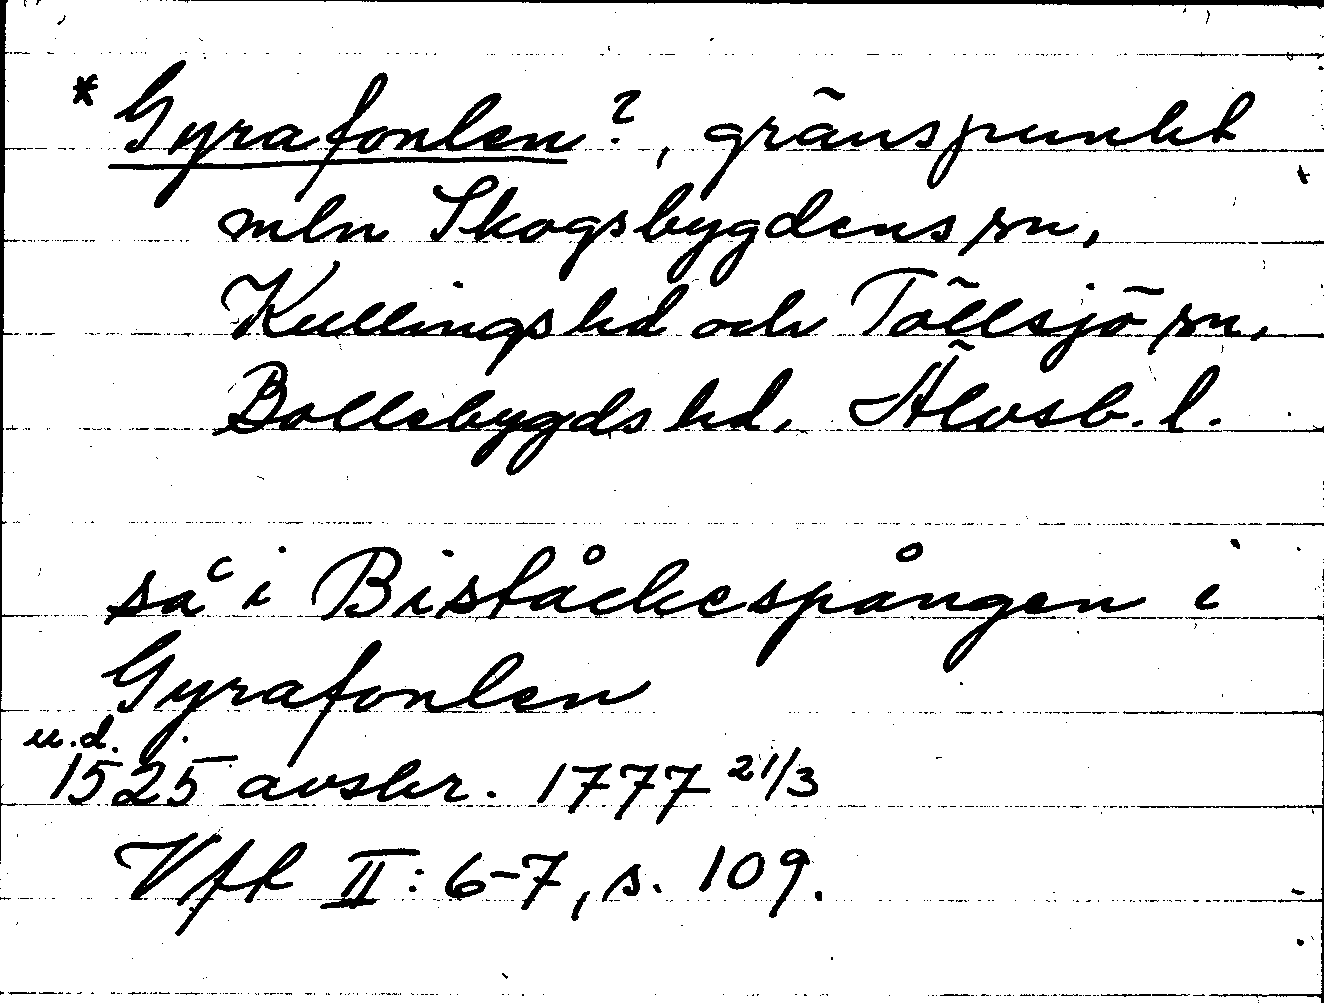 * Gyrafonlen?, gränspunkt
mln Skogsbygdens sn,
Kullings hd och Töllsjö sn,
Bollebygds hd, Älvsb. l.
så i Biståckespången i
Gyrafonlen
u.d.
1525 avskr. 1777 21/3
Vfk II: 6-7, s. 109.